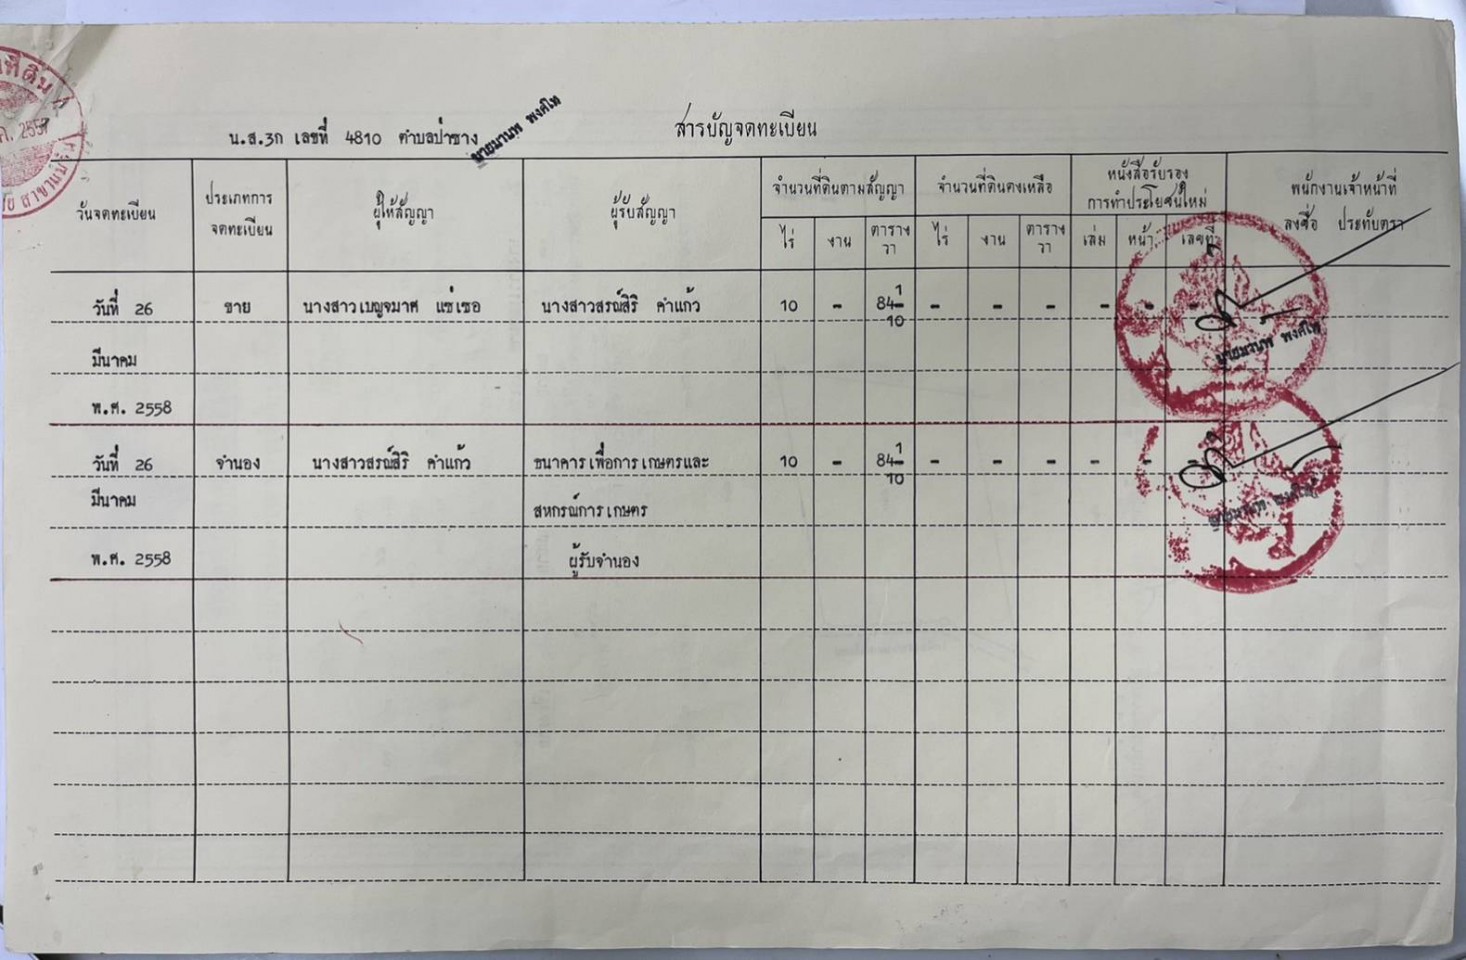 ที่ดิน
2557
สาขาแม่
สารบัญจดทะเบียน
น.ส.3ก เลขที่ 4810 ตำบลป่าซาง
นายมานพ พงศ์ไท
วันจดทะเบียน ประเภทการ ผู้ให้สัญญา ผู้รับสัญญา จำนวนที่ดินตามสัญญา จำนวนที่ดินคงเหลือ หนังสือรับรอง พนักงานเจ้าหน้าที่
จดทะเบียน การทำประโยชน์ใหม่ ลงชื่อ ประทับตรา
ไร่ งาน ตาราง ไร่ งาน ตาราง เล่ม หน้า เลขที่
วา วา
วันที่ 26 ขาย นางสาวเบญจมาศ แซ่เซอ นางสาวสรณ์สิริ คำแก้ว 10 - 84 1/10 - - - - - -
นายมานพ พงศ์ไท
มีนาคม
พ.ศ. 2558
วันที่ 26 จำนอง นางสาวสรณ์สิริ คำแก้ว ธนาคารเพื่อการเกษตรและ 10 - 84 1/10 - - - - -
มีนาคม สหกรณ์การเกษตร
นายมานพ พงศ์ไท
พ.ศ. 2558 ผู้รับจำนอง